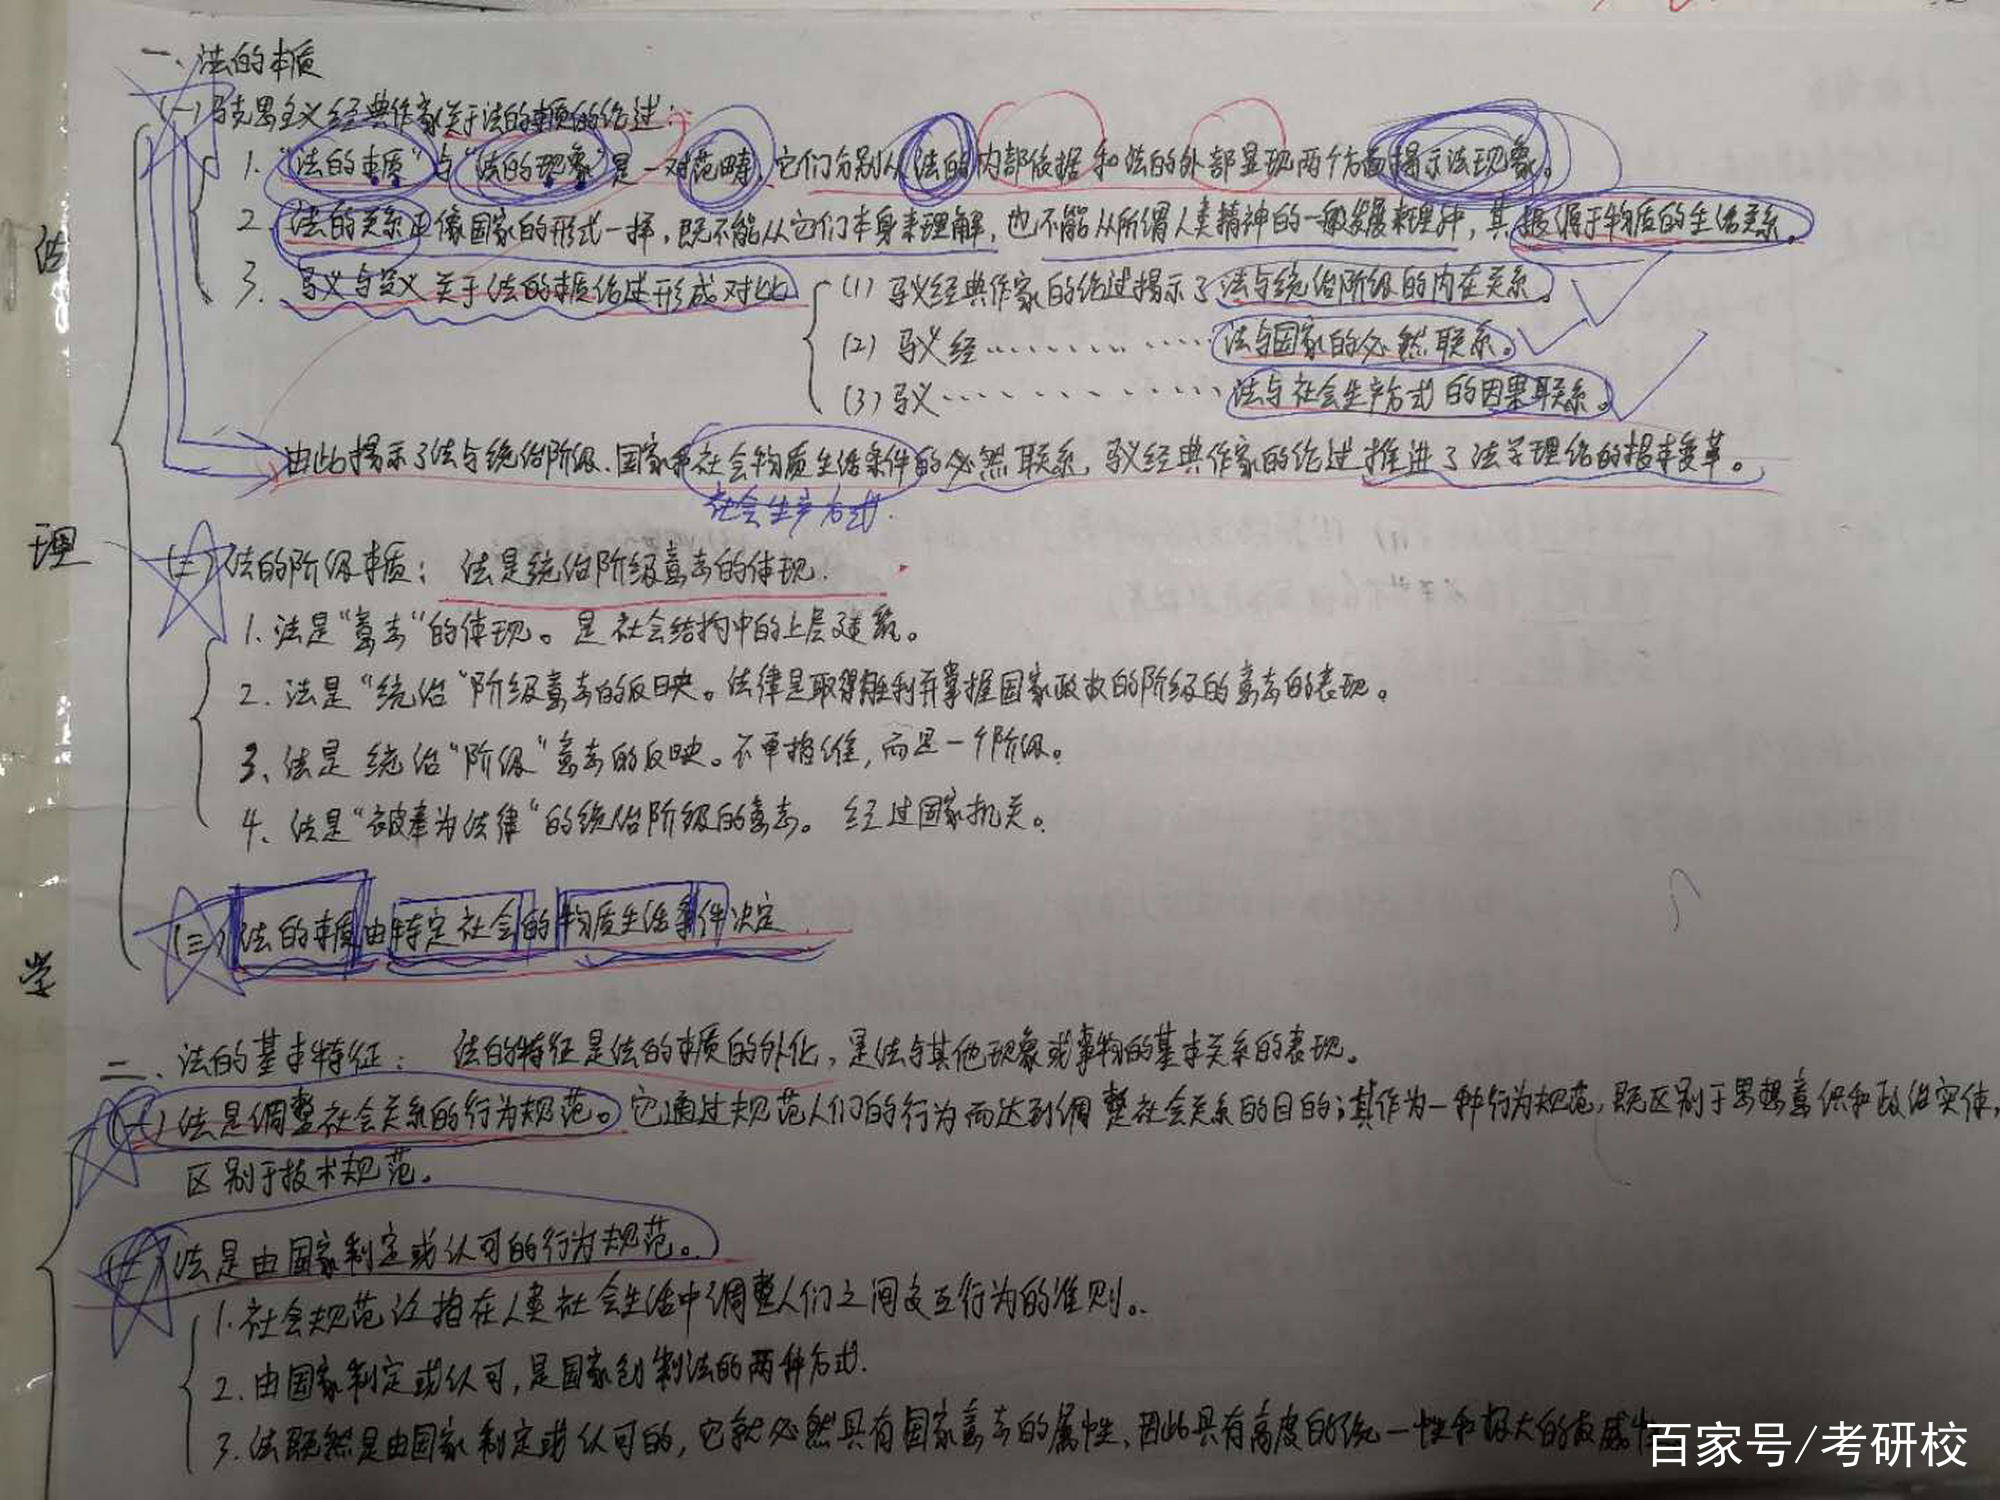 法
理
学
一、法的本质
(一)马克思主义经典作家关于法的本质的论述:
1. "法的本质"与"法的现象"是一对范畴,它们分别从法的内部依据和法的外部显现两个方面揭示法现象。
2. 法的关系正像国家的形式一样,既不能从它们本身来理解,也不能从所谓人类精神的一般发展来理解,其根源于物质的生活关系。
3. 马义与非义关于法的本质论述形成对比
(1) 马义经典作家的论述揭示了法与统治阶级的内在关系。
(2) 马义经…………法与国家的必然联系。
(3) 马义…………法与社会生产方式的因果联系。
由此揭示了法与统治阶级、国家和社会物质生活条件的必然联系,马义经典作家的论述推进了法学理论的根本变革。
社会生产方式.
(二)法的阶级本质: 法是统治阶级意志的体现.
1. 法是"意志"的体现。是社会结构中的上层建筑。
2. 法是"统治"阶级意志的反映。法律是取得胜利并掌握国家政权的阶级的意志的表现。
3、法是统治"阶级"意志的反映。不单指谁,而是一个阶级。
4、法是"被奉为法律"的统治阶级的意志。 经过国家机关。
(三)法的本质由特定社会的物质生活条件决定.
二、法的基本特征: 法的特征是法的本质的外化,是法与其他现象或事物的基本关系的表现。
(一)法是调整社会关系的行为规范。它通过规范人们的行为而达到调整社会关系的目的;其作为一种行为规范,既区别于思想意识和政治实体,
区别于技术规范。
(二)法是由国家制定或认可的行为规范。
1. 社会规范泛指在人类社会生活中调整人们之间交互行为的准则。
2. 由国家制定或认可,是国家创制法的两种方式.
3. 法既然是由国家制定或认可的,它就必然具有国家意志的属性、因此具有高度的统一性和极大的权威性
百家号/考研校